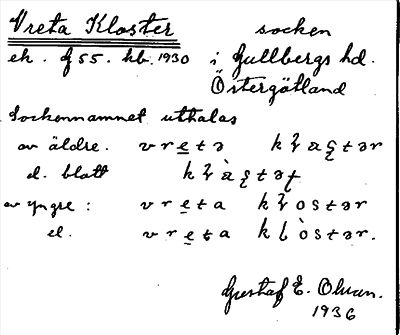 Vreta Kloster socken
ek. f 55. kb. 1930 i Gullbergs hd.
Östergötland
Sockennamnet uthalas
av äldre. vretə kɭastər
el. blott kɭàstəɼ
av yngre: vreta kɭostər
el. vreta klòstər.
Gustaf E. Olsson.
1936